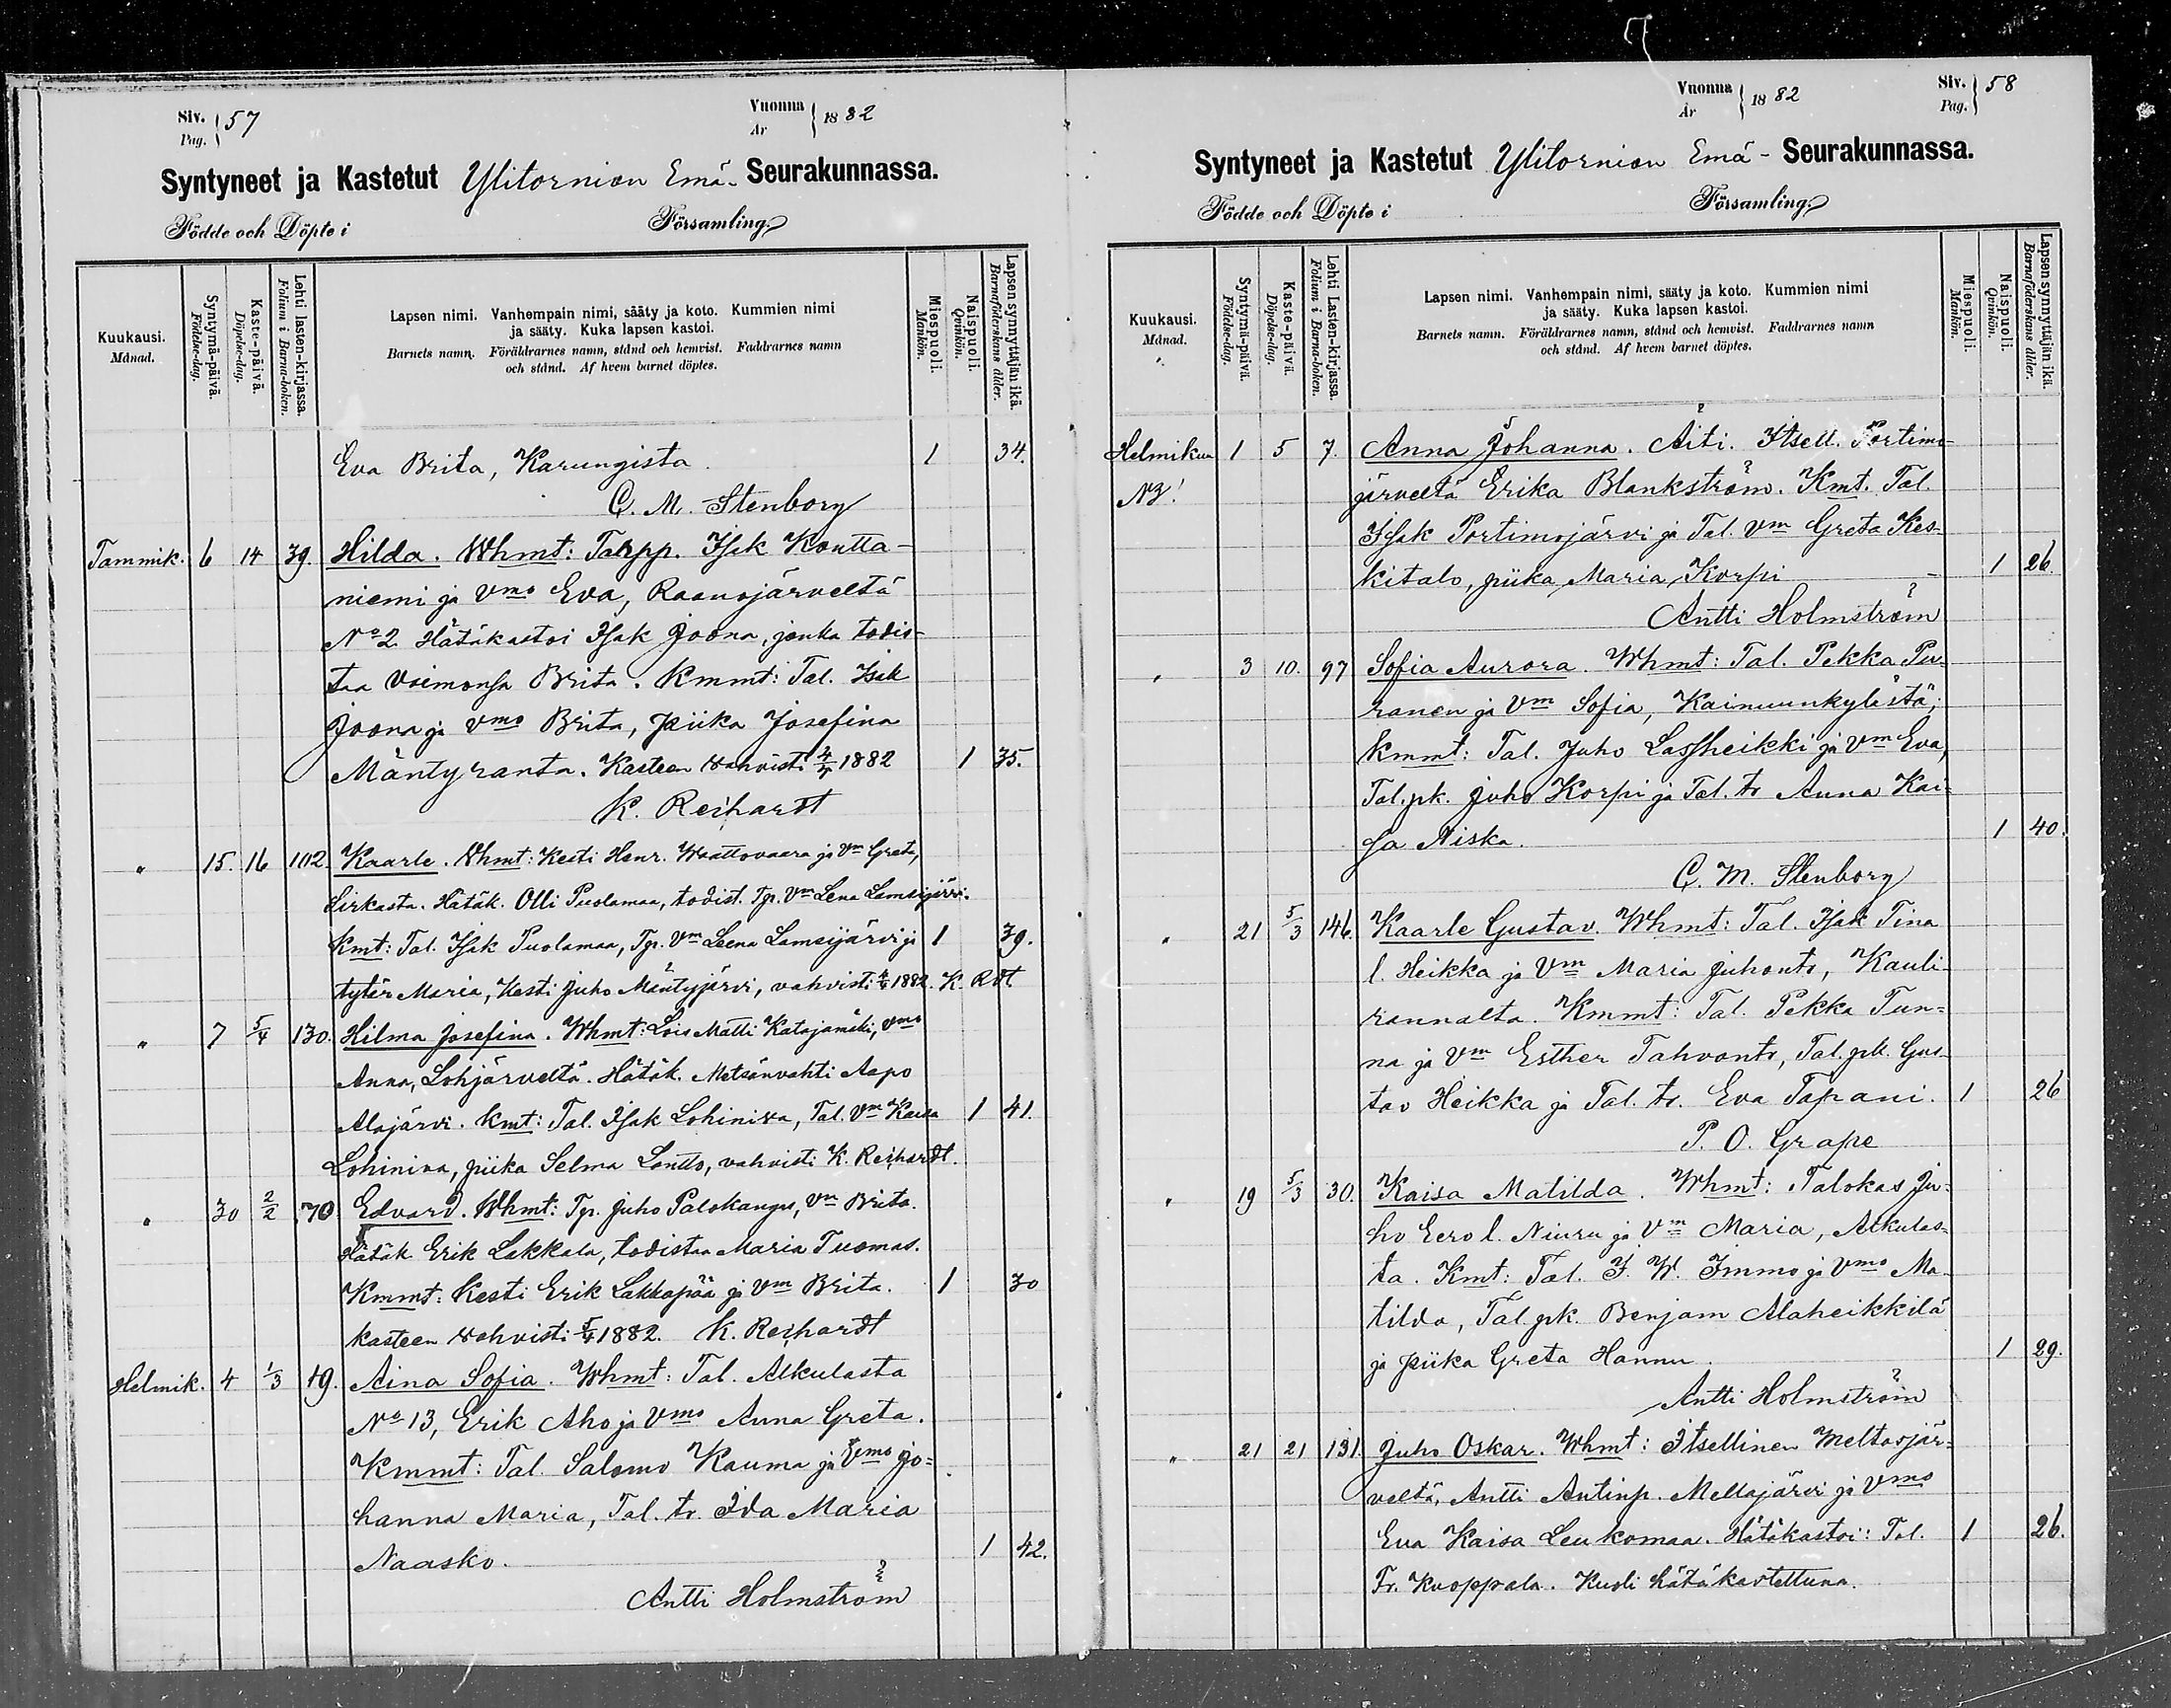 Siv. Pag. 57
Vuonna År 1882
Syntyneet ja Kastetut Ylitornion Emä- Seurakunnassa.
Födde och Döpte i Församling.
Kuukausi. Månad.
Syntymä-päivä. Födelse-dag.
Kaste-päivä. Döpelse-dag.
Lehti lasten-kirjassa. Folium i Barna-boken.
Lapsen nimi. Vanhempain nimi, sääty ja koto. Kummien nimi
ja sääty. Kuka lapsen kastoi.
Barnets namn. Föräldrarnes namn, stånd och hemvist. Faddrarnes namn
och stånd. Af hvem barnet döptes.
Miespuoli. Mankön.
Naispuoli. Qvinkön.
Lapsen synnyttäjän ikä. Barnaföderskans ålder.
Eva Brita, Karungista. 1 34.
C. M. Stenborg
Tammik. 6 14 39. Hilda. Whmt: Torpp. Isak Kontta-
niemi ja Vmo Eva, Raanujärveltä
No 2 Hätäkastoi Isak Joona, jonka todis-
taa Vaimonsa Brita. Kmmt: Tal. Isak
Joona ja Vmo Brita, piika Josefina
Mäntyranta. Kasteen vahvisti 4/4 1882 1 35.
K. Reihardt
" 15. 16 102. Kaarle. Vhmt: Kesti Henr. Wattovaara ja Vm Greta,
Sirkasta. Hätäk. Olli Puolamaa, todist. Tp. Vm Lena Lamsijärvi.
Kmt: Tal. Isak Puolamaa, Tp. Vm Leena Lamsijärvi ja 1 39.
tytär Maria, Kesti Juho Mäntyjärvi, vahvisti 4/4 1882. K. Rdt
" 7 5/4 130. Hilma Josefina. Whmt: Lois Matti Katajamäki, Vmo
Anna, Lohjärveltä. Hätäk. Metsänvahti Aapo
Alajärvi. Kmt: Tal. Isak Lohiniva, Tal. Vm Kaisa 1 41.
Lohiniva, piika Selma Lantto, vahvisti K. Reihardt.
" 30 2/2 70 Edvard. Whmt: Tp. Juho Palokangas, Vm Brita.
Hätäk Erik Lakkala, todistaa Maria Tuomas.
Kmmt: Kesti Erik Lakkapää ja Vm Brita. 1 30
kasteen vahvisti 5/4 1882. K. Reihardt
Helmik. 4 1/3 19. Aina Sofia. Whmt: Tal. Alkulasta
No 13, Erik Aho ja Vmo Anna Greta.
Kmmt: Tal. Salomo Kauma ja Vmo Jo=
hanna Maria, Tal. tr. Ida Maria
Naasko. 1 42.
Antti Holmström
Vuonna År 1882
Siv. Pag. 58
Syntyneet ja Kastetut Ylitornion Emä- Seurakunnassa.
Födde och Döpte i Församling.
Kuukausi. Månad.
Syntymä-päivä. Födelse-dag.
Kaste-päivä. Döpelse-dag.
Lehti Lasten-kirjassa. Folium i Barna-boken.
Lapsen nimi. Vanhempain nimi, sääty ja koto. Kummien nimi
ja sääty. Kuka lapsen kastoi.
Barnets namn. Föräldrarnes namn, stånd och hemvist. Faddrarnes namn
och stånd. Af hvem barnet döptes.
Miespuoli. Mankön.
Naispuoli. Qvinkön.
Lapsen synnyttäjän ikä. Barnaföderskans ålder.
Helmikuu 1 5 7. Anna Johanna. Äiti. Itsell. Portimo-
järveltä Erika Blankström. Kmt. Tal.
Isak Portimojärvi ja Tal. Vm Greta Kes-
kitalo, piika Maria Korpi 1 26.
Antti Holmström
" 3 10. 97 Sofia Aurora. Whmt: Tal. Pekka Pu-
ranen ja Vm Sofia, Kainuunkylästä;
Kmmt: Tal. Juho Lassheikki ja Vm Eva,
Tal. pk. Juho Korpi ja Tal. tr Anna Kai-
sa Niska. 1 40.
C. M. Stenborg
" 21 5/3 146. Kaarle Gustav. Whmt: Tal. Isak Tina
l. Heikka ja Vm Maria Juhontr, Kauli-
rannalta. Kmmt: Tal. Pekka Tun=
na ja Vm Esther Tahvontr, Tal. pk. Gus-
tav Heikka ja Tal. tr. Eva Tapani. 1 26
P. O. Grape
" 19 5/3 30. Kaisa Matilda. Whmt: Talokas Ju-
ho Eero l. Niuru ja Vm Maria, Alkulas-
ta. Kmt: Tal. I. W. Immo ja Vmo Ma-
tilda, Tal. pk. Benjam Alaheikkilä
ja piika Greta Hannu. 1 29.
Antti Holmström
" 21 21 131. Juho Oskar. Whmt: Itsellinen Meltosjär=
veltä, Antti Antinp. Mellajärvi ja Vmo
Eva Kaisa Leukomaa. Hätäkastoi: Tal. 1 26.
Fr. Kuoppala. Kuoli hätäkastettuna.